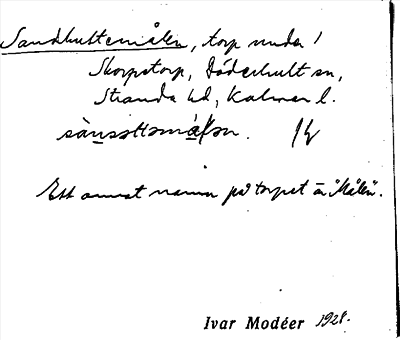 Sandhultemålen, torp under
Skorpetorp, Döderhult sn,
Stranda hd, Kalmar l.
Ett annat namn på torpet är "Målen".
Ivar Modéer 1928.